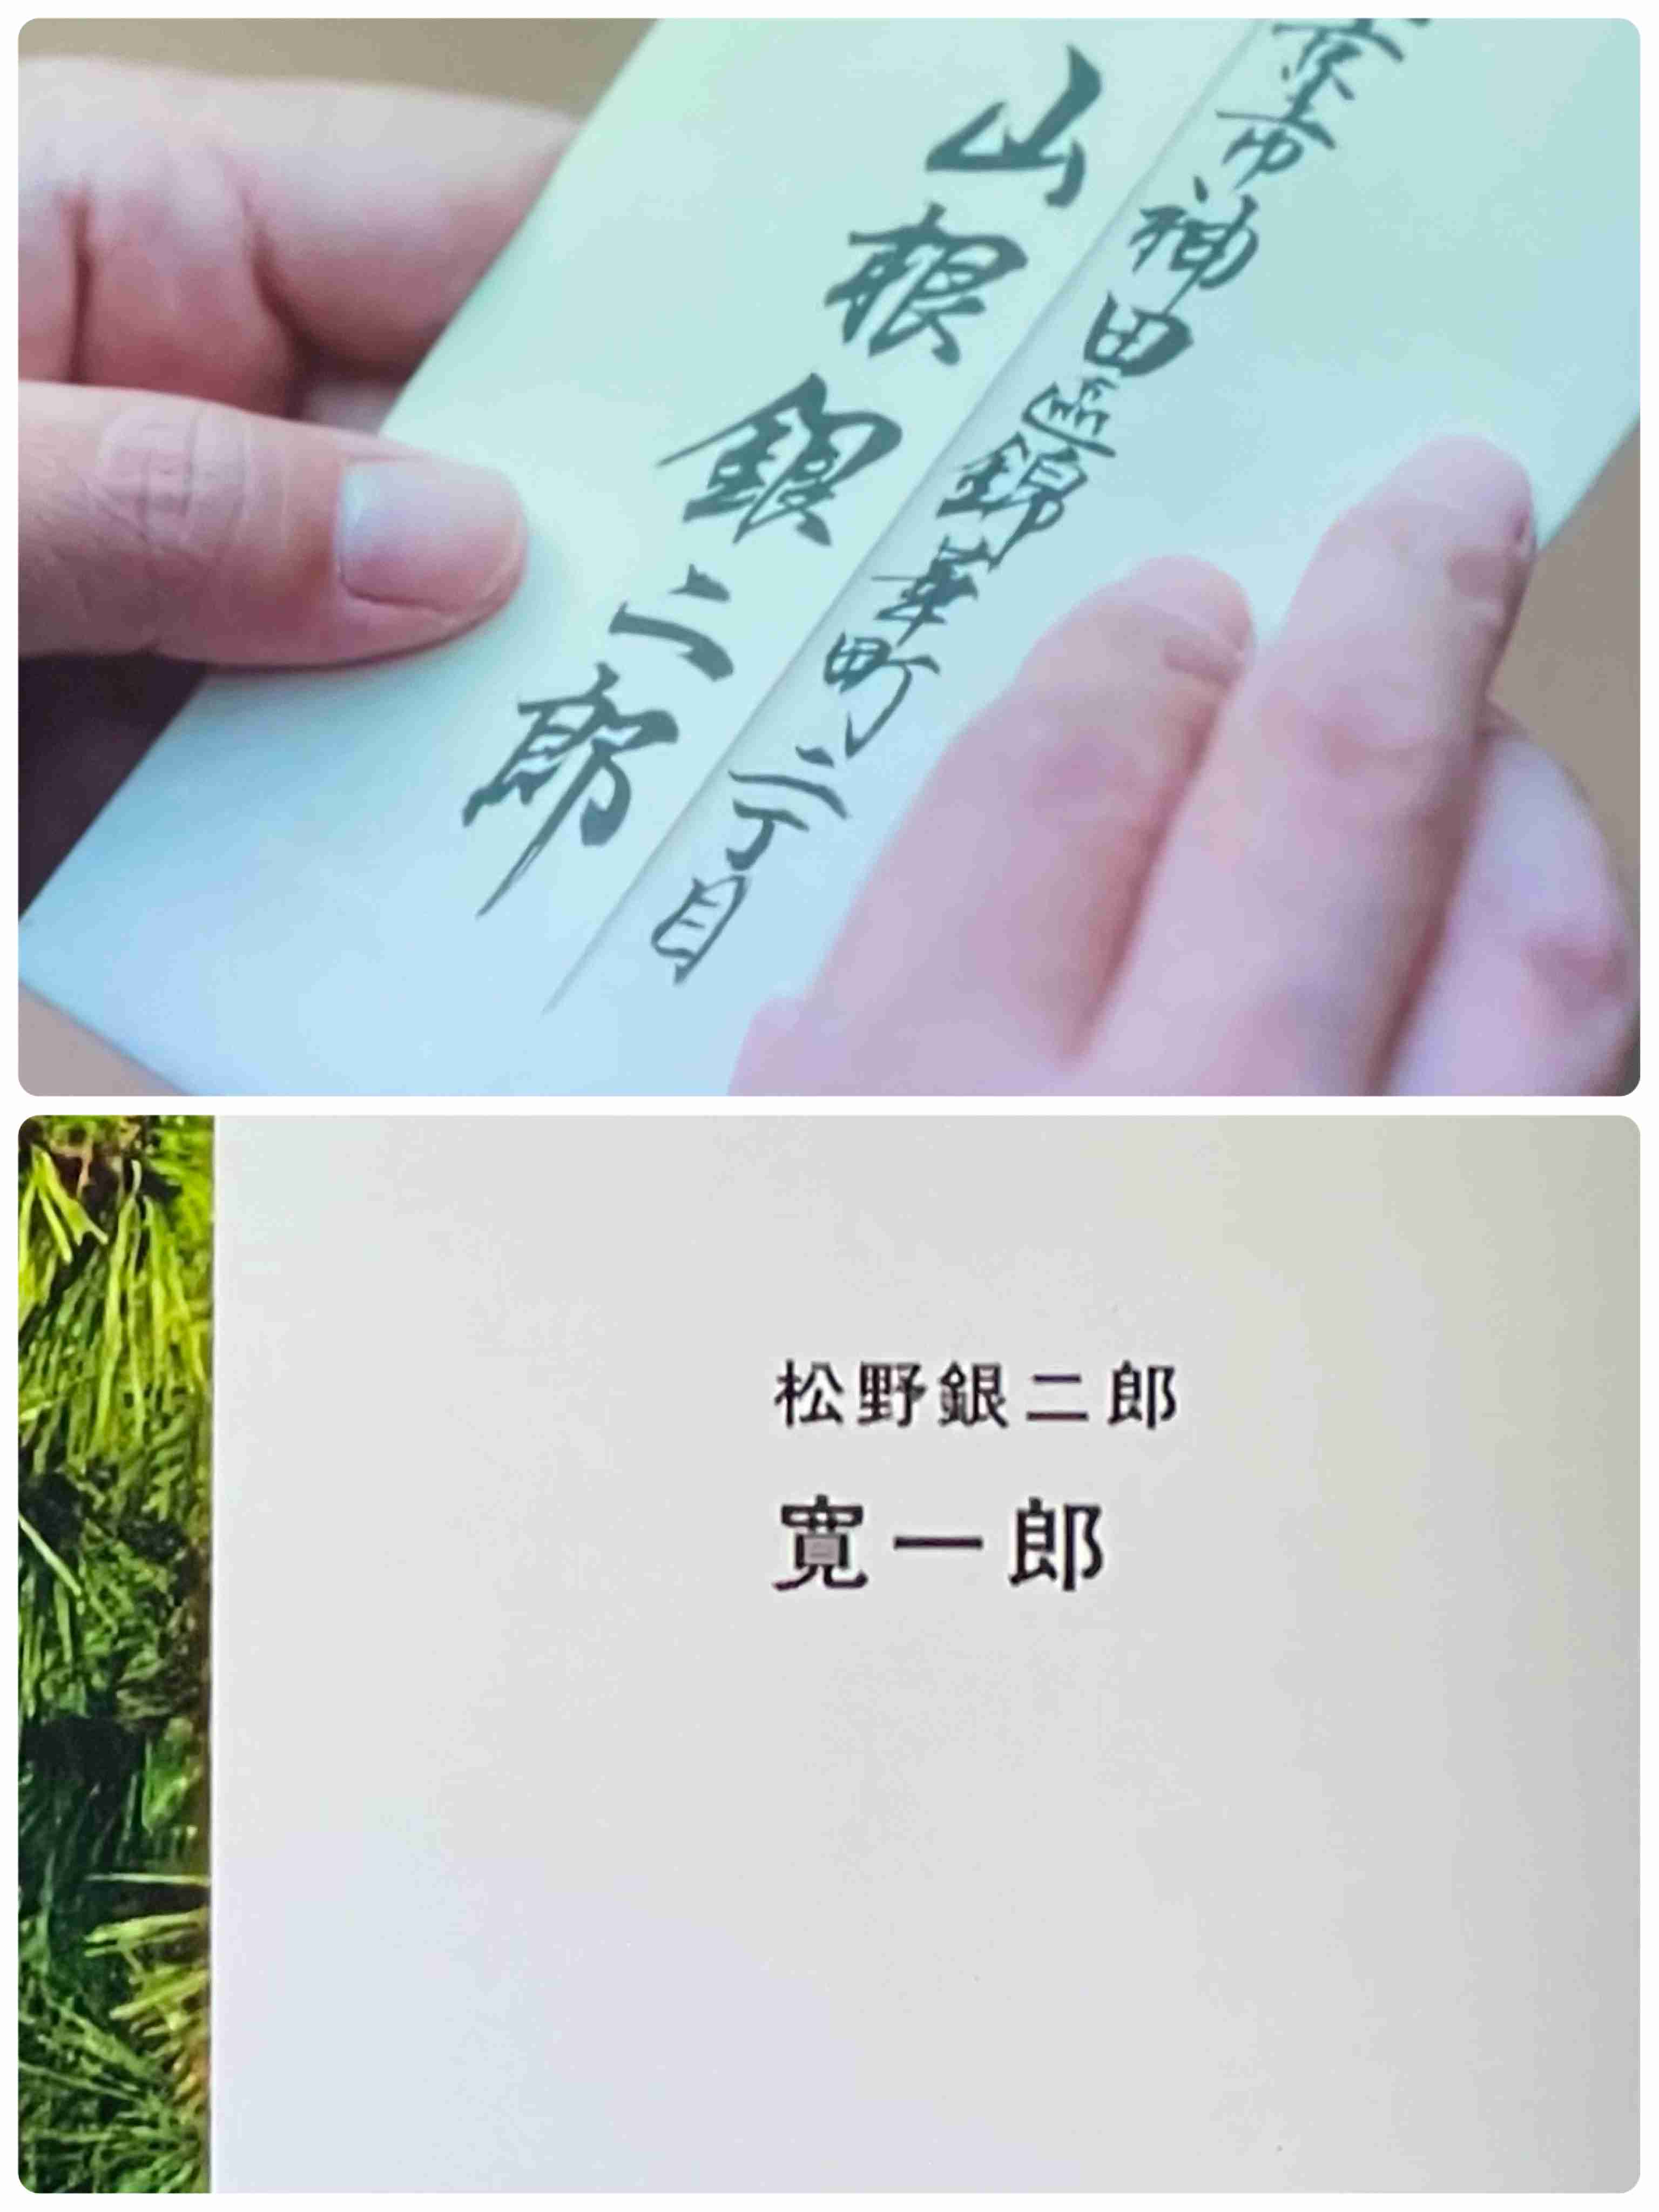 京市神田區錦華町二丁目
山根銀二郎
松野銀二郎
寛一郎